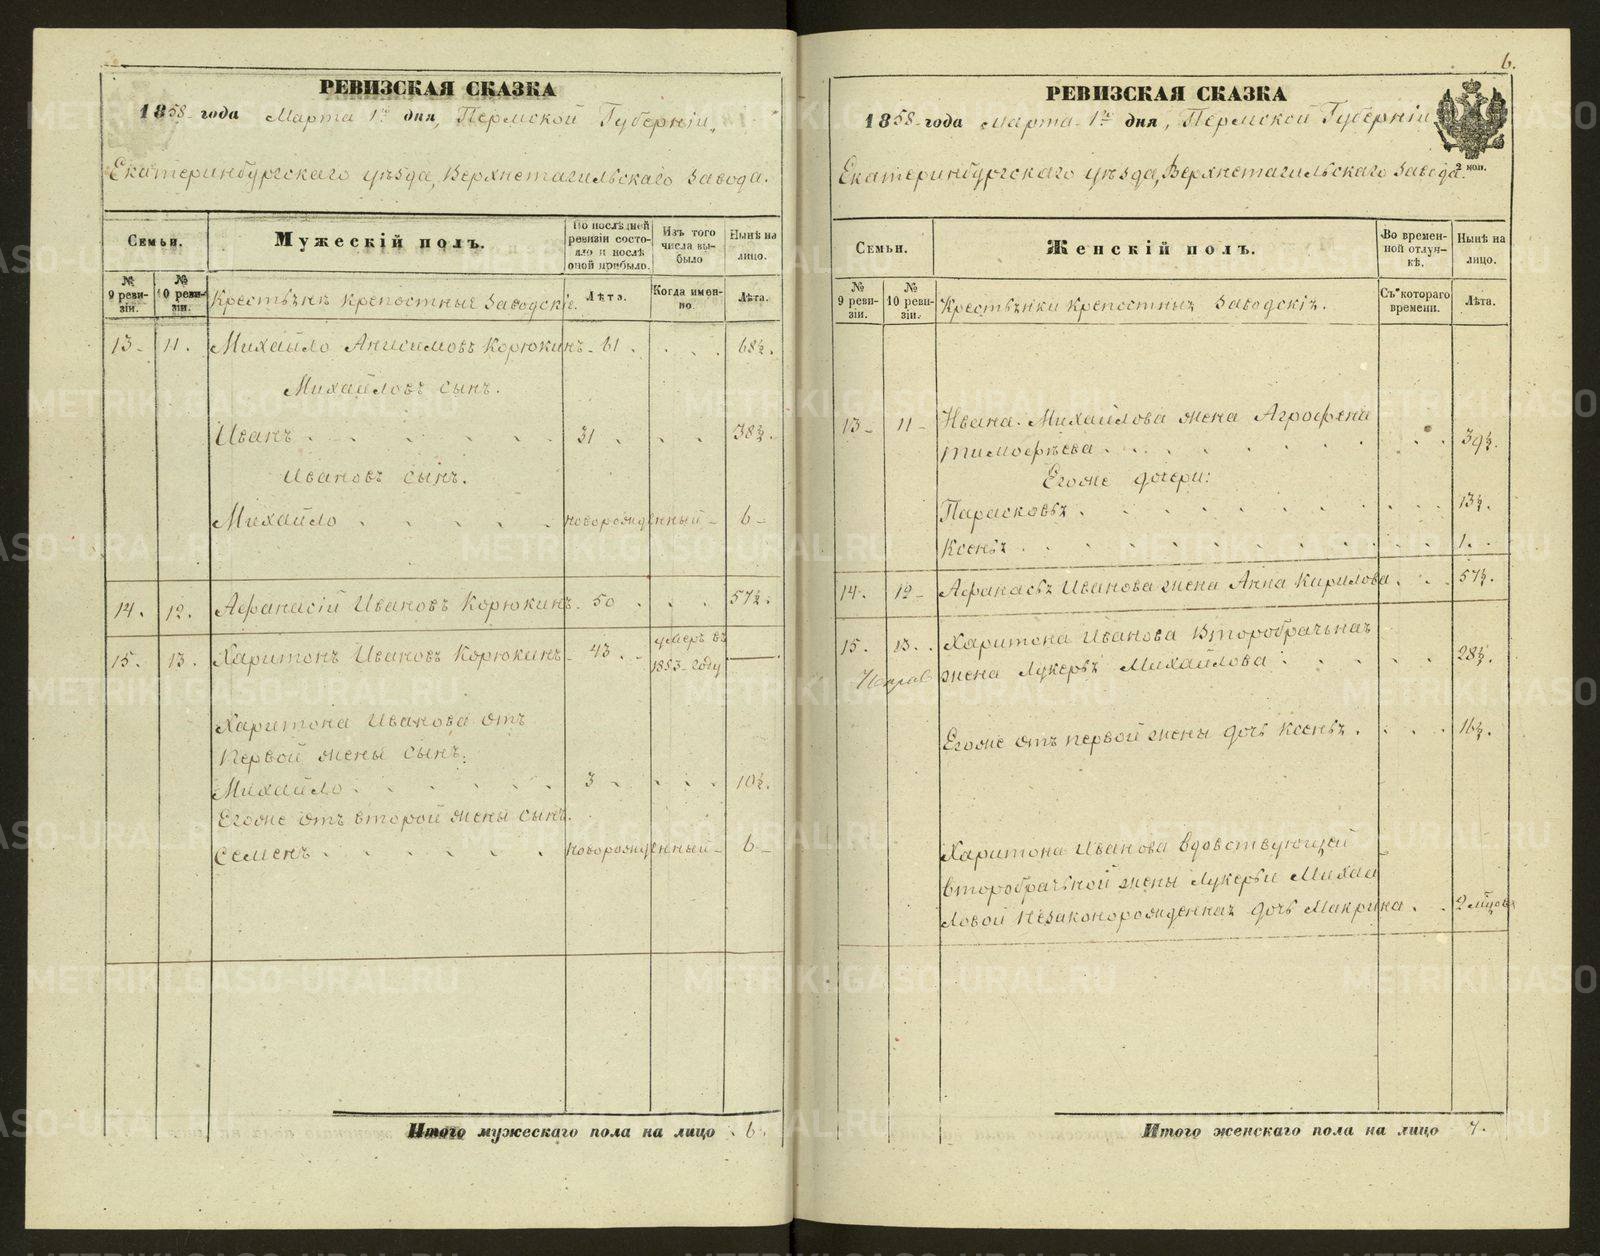 РЕВИЗСКАЯ СКАЗКА
1858 года Марта 1го дня, Пермской Губерніи,
Екатеринбургскаго уѣзда, Верхнетагильскаго завода.
Семьи.
Мужескій полъ.
По послѣдней ревизіи состояло и послѣ оной прибыло.
Изъ того числа выбыло
Нынѣ на лицо.
№ 9 ревизіи.
№ 10 ревизіи.
Крестьяне крепостные заводскіе.
Лѣта.
Когда именно.
Лѣта.
13 11. Михайло Анисимовъ Корюкинъ 61 68½.
Михайловъ сынъ.
Иванъ 31 38½.
Ивановъ сынъ.
Михайло новорожденный 6
14. 12. Афанасій Ивановъ Корюкинъ. 50 57½.
15. 13. Харитонъ Ивановъ Корюкинъ 43 умеръ въ 1853 году
Харитона Иванова отъ
первой жены сынъ:
Михайло 3 10½.
Егоже отъ второй жены сынъ.
Семенъ новорожденный 6
Итого мужескаго пола на лицо 6.
6.
РЕВИЗСКАЯ СКАЗКА
1858 года Марта 1го дня, Пермской Губерніи
Екатеринбургскаго уѣзда, Верхнетагильскаго завода.
2 коп.
Семьи.
Женскій полъ.
Во временной отлучкѣ.
Нынѣ на лицо.
№ 9 ревизіи.
№ 10 ревизіи.
Крестьянки крепостныя заводскія.
Съ котораго времени.
Лѣта.
13 11 Ивана Михайлова жена Агрофена
Тимофѣева 39½.
Егоже дочери:
Парасковья 13½.
Ксенья 1.
14. 12 Афанасья Иванова жена Анна Кирилова 57½.
15. 13. Харитона Иванова второбрачная
жена Лукерья Михайлова 28½.
Егоже отъ первой жены дочь Ксенья 16½.
Харитона Иванова вдовствующей
второбрачной жены Лукерьи Михай
ловой незаконорожденная дочь Макрина 2 мѣсяца
Итого женскаго пола на лицо 7.
METRIKI.GASO-URAL.RU